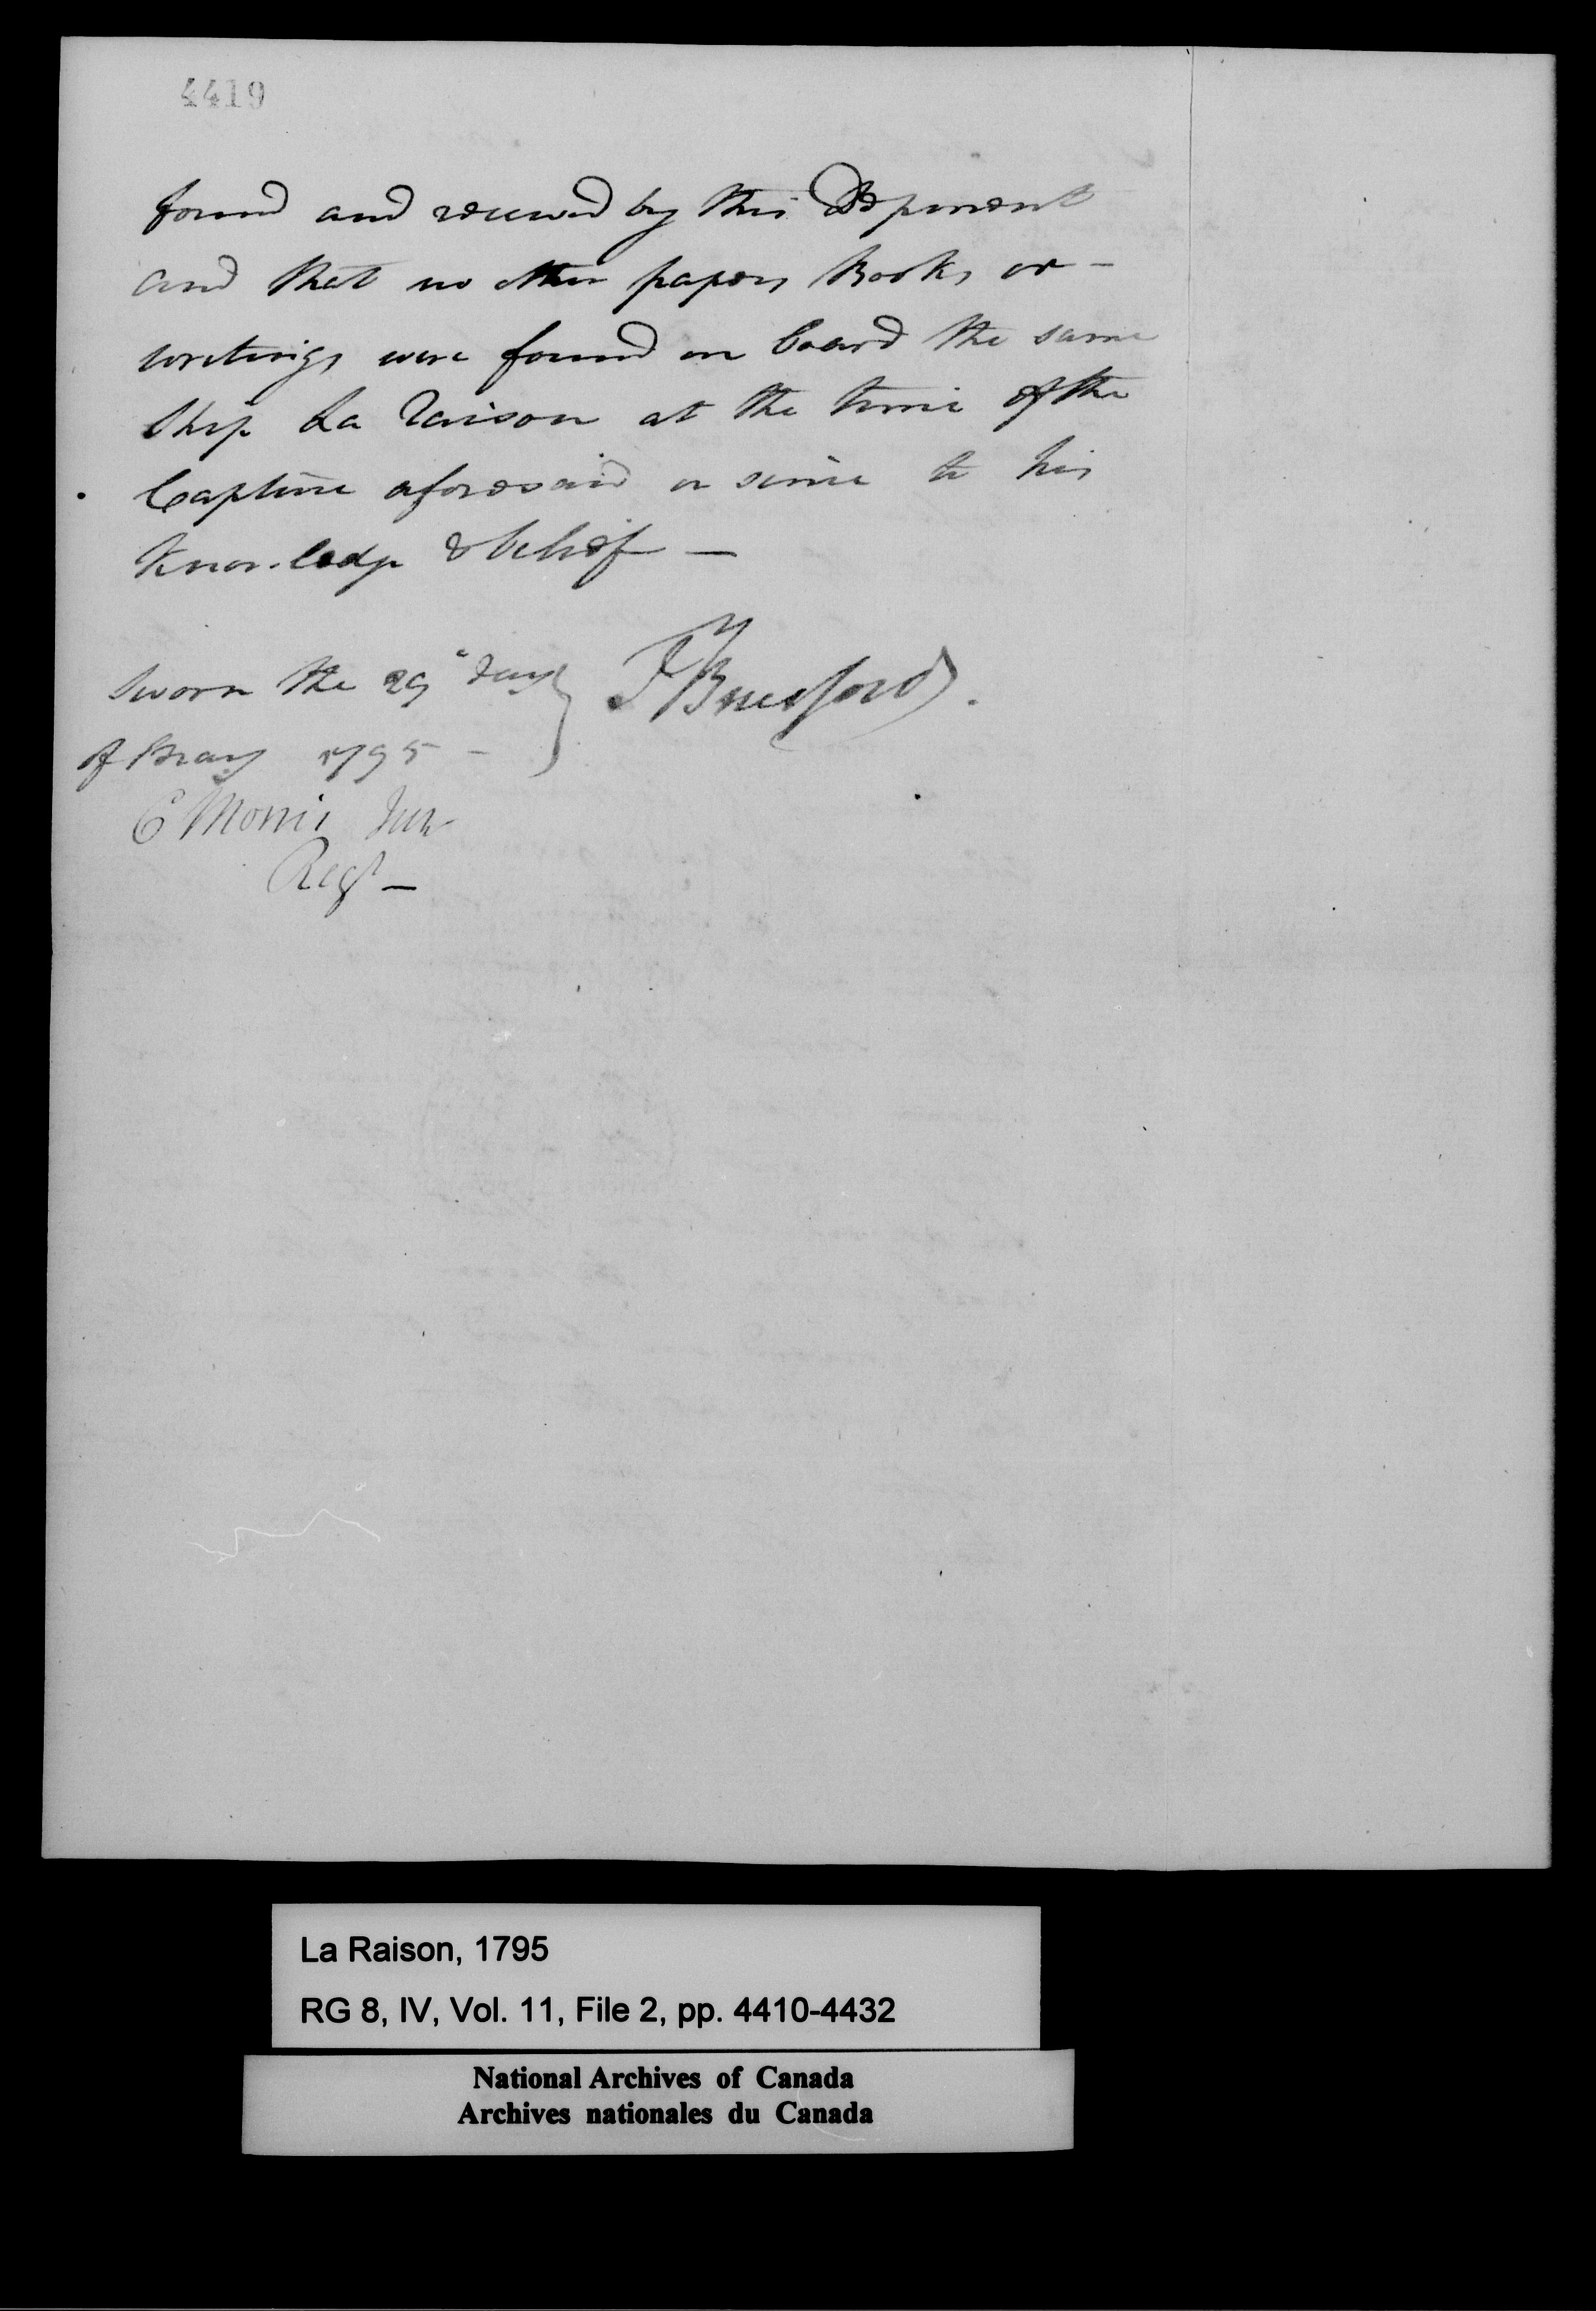 4419
found and received by this Deponent
and that no other papers Books or -
writings were found on board the same
Ship La Raison at the time of the
Capture aforesaid or since to his
Knowledge & belief —
Sworn the 29" day
of May 1795 -
J P Beresford.
C Morris Junr
Regr —
La Raison, 1795
RG 8, IV, Vol. 11, File 2, pp. 4410-4432
National Archives of Canada
Archives nationales du Canada